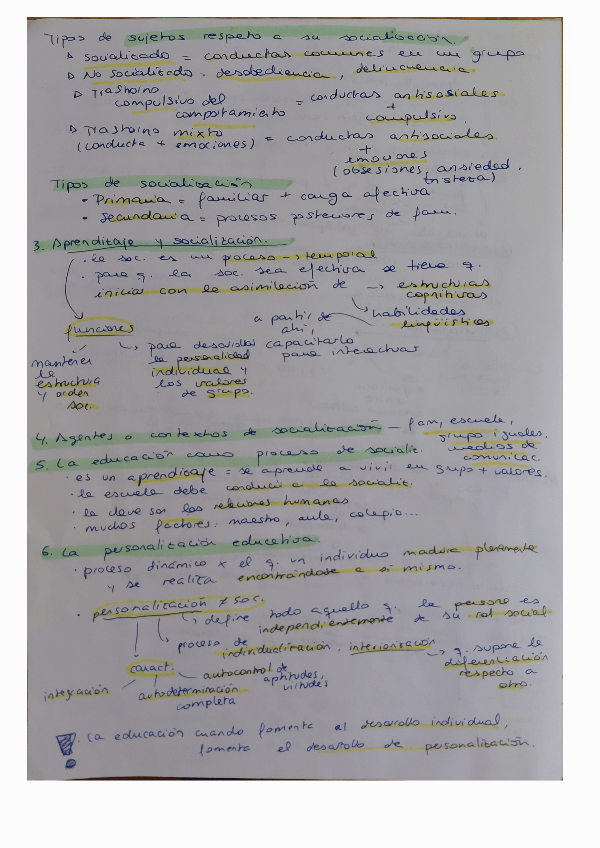 Tipos de sujetos respeto a su socialización.
▷ socializado = conductas comunes en un grupo
▷ No socializado. desobediencia, delincuencia
▷ Trastorno compulsivo del comportamiento = conductas antisociales + compulsivo.
▷ Trastorno mixto (conducta + emociones) = conductas antisociales + emociones (obsesiones, ansiedad, tristeza)
Tipos de socialización
• Primaria = familias + carga afectiva
• Secundaria = procesos posteriores de fam.
3. Aprendizaje y socialización.
• la soc. es un proceso → temporal
• para q. la soc. sea efectiva se tiene q.
iniciar con la asimilación de → estructuras cognitivas
habilidades lingüísticas
a partir de ahí, capacitarlo para interactuar
funciones
mantener la estructura y orden soc.
para desarrollar la personalidad individual y los valores de grupo.
4. Agentes o contextos de socialización – fam, escuela, grupo iguales, medios de comunicac.
5. La educación como proceso de socialic.
• es un aprendizaje = se aprende a vivir en grupo + valores.
• la escuela debe conducir a la socialic.
• la clave son las relaciones humanas
• muchos factores: maestro, aula, colegio...
6. La personalización educativa.
• proceso dinámico x el q. un individuo madura plenamente
y se realiza encontrándose a si mismo.
• personalización ≠ soc.
define todo aquello q. la persona es
independientemente de su rol social
proceso de individualización, interiorización
→ q. supone la diferenciación respecto a otro.
caract.
integración
autodeterminación completa
autocontrol de aptitudes, virtudes
! La educación cuando fomenta el desarollo individual,
fomenta el desarollo de personalización.